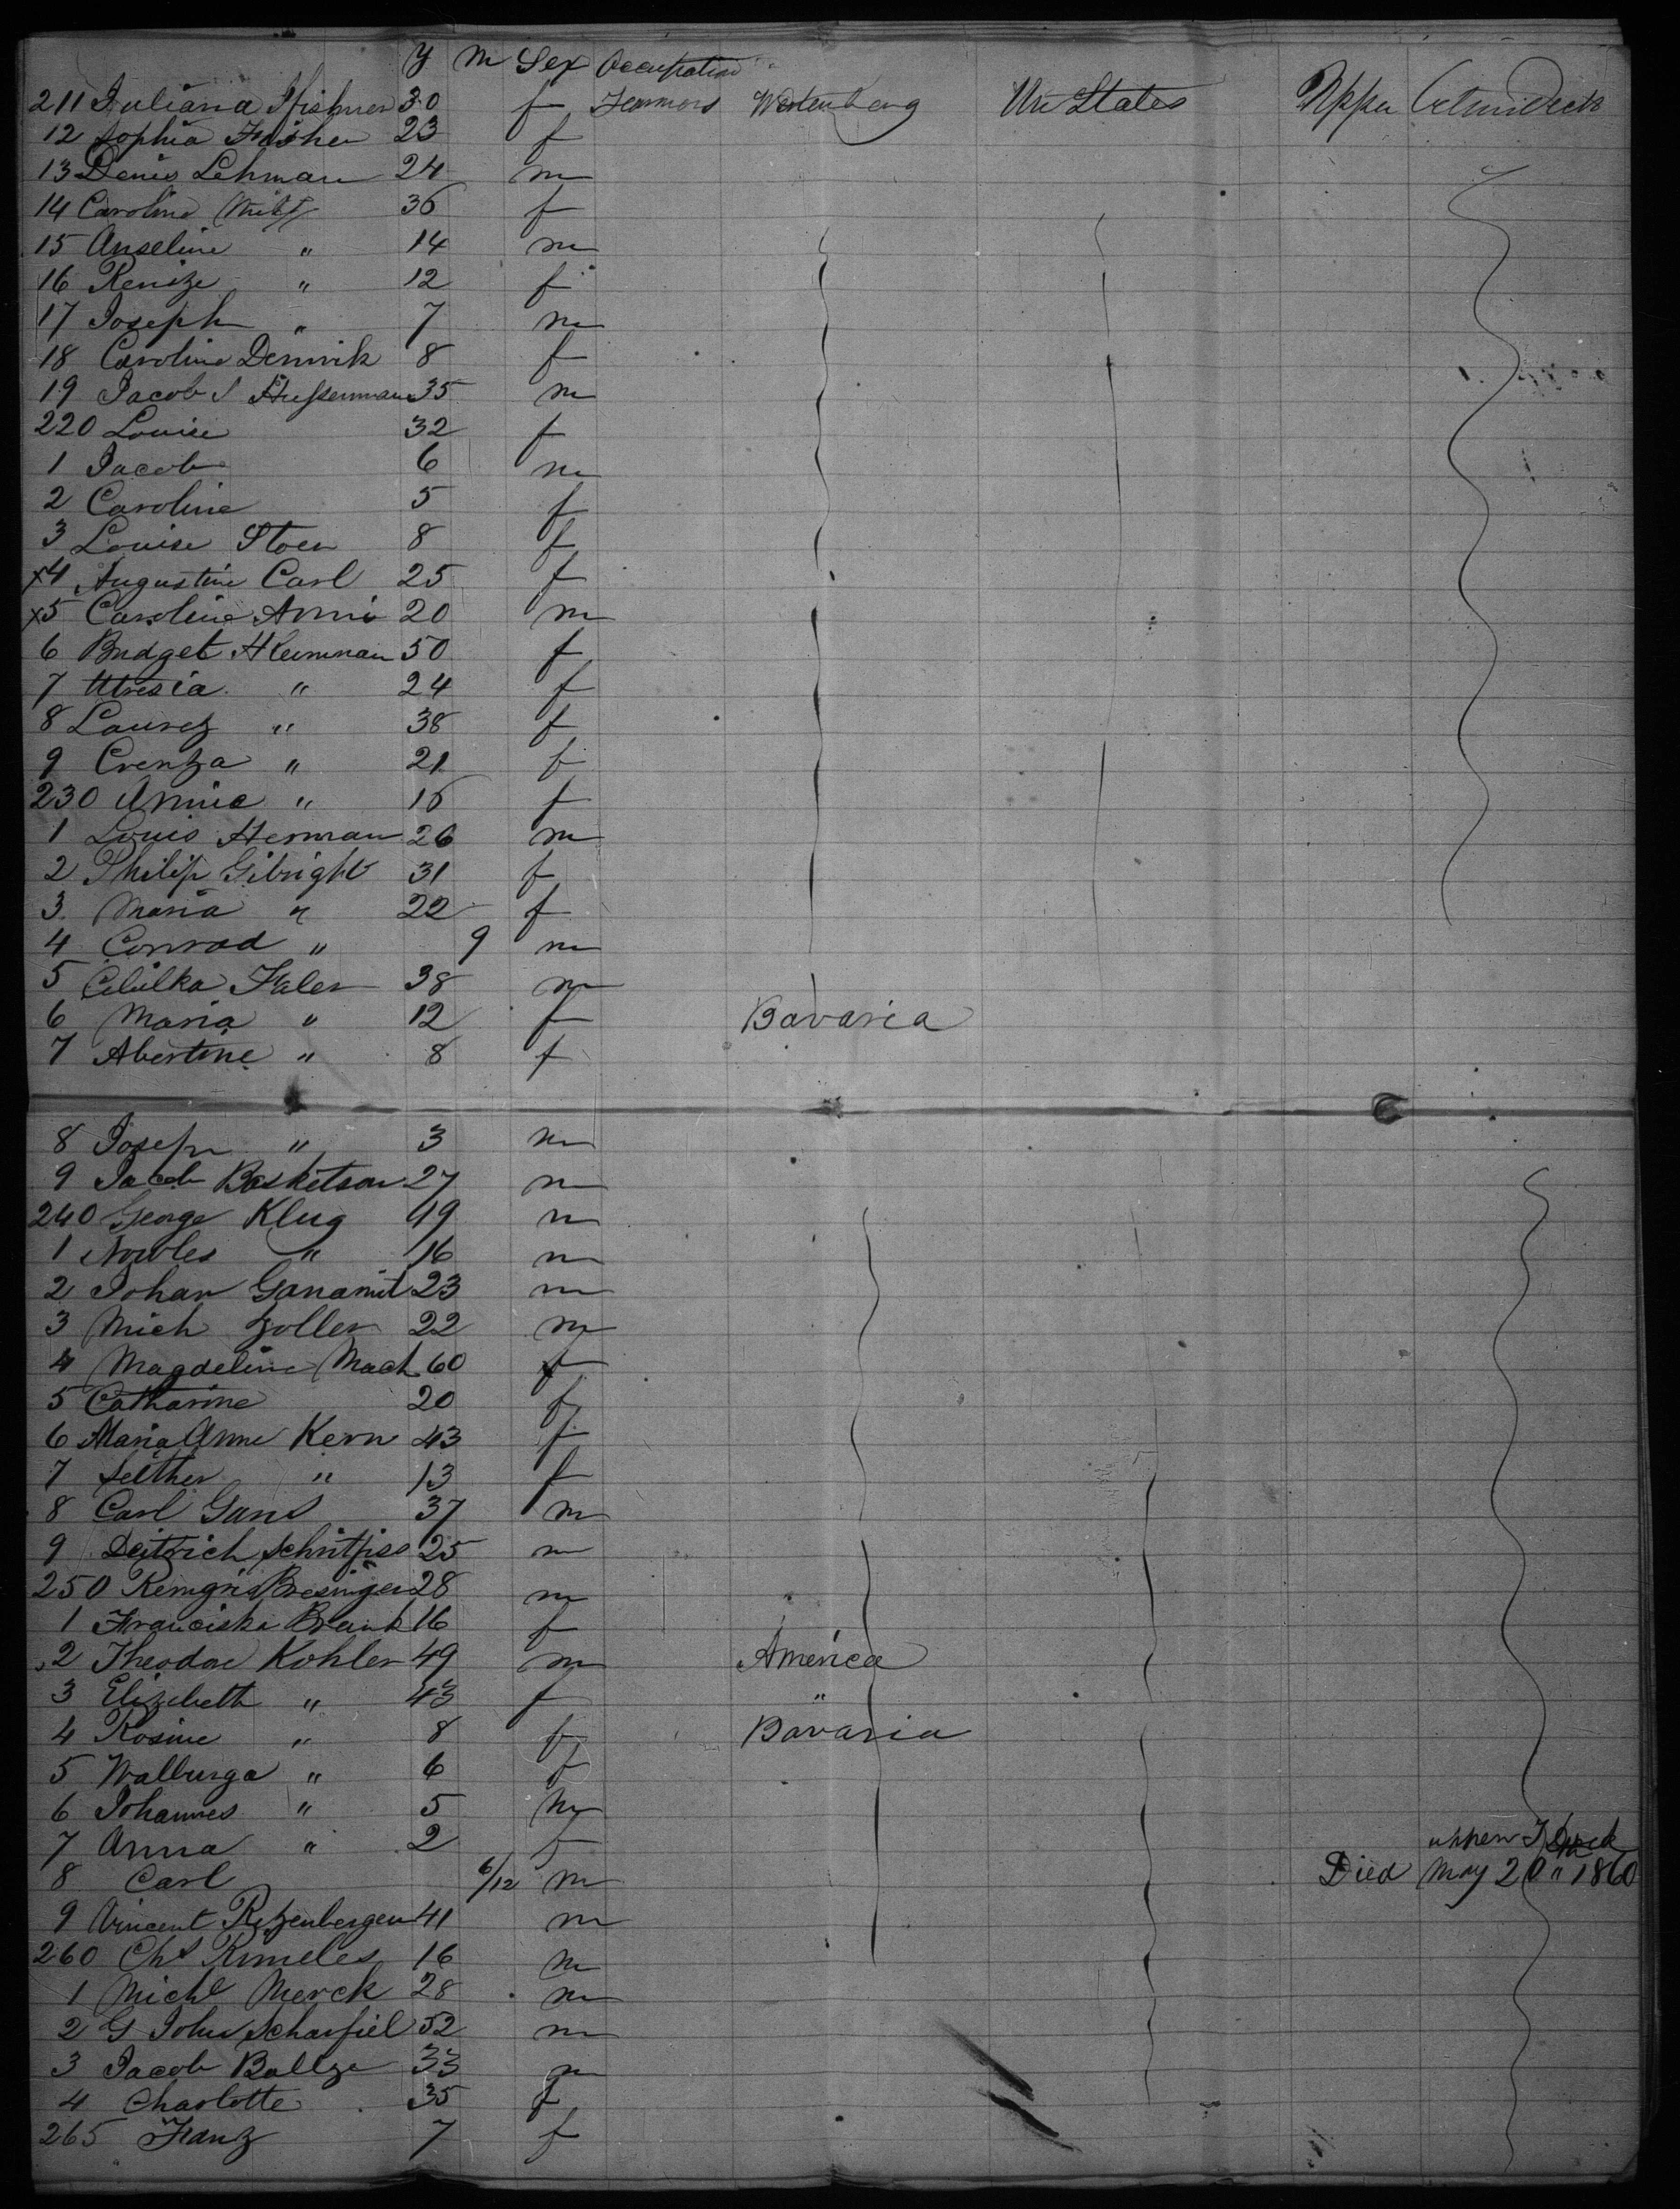 y m Sex Occupation
211 Juliana Pfishner 30 f Wertenberg Un States Upper
12 Sophia Fisher 23 f
13 Denis Lehman 24 m
14 Caroline 36 f
15 Anseline " 14 m
16 Renize " 12 f
17 Joseph " 7 m
18 Caroline Dennik 8 f
19 Jacob S Hussenman 35 m
220 Louise 32 f
1 Jacob 6 m
2 Caroline 5 f
3 Louise Stoer 8 f
x4 Augustine Carl 25 f
x5 Caroline Anni 20 m
6 Bridget Hleimman 50 f
7 " 24 f
8 Laurez " 38 f
9 Crenza " 21 f
230 Annie " 16 f
1 Louis Herman 26 m
2 Philip Gibright 31 f
3 Maria " 22 f
4 Conrad " 9 m
5 Faler 38 m
6 Maria " 12 f Bavaria
7 Abertine " 8 f
8 Joseph " 3 m
9 Jacob Basketson 27 m
240 George Klug 49 m
1 " 16 m
2 Johan Ganamit 23 m
3 Mich Zoller 22 m
4 Magdeline Mach 60 f
5 Catharine 20 f
6 Maria Anne Kern 43 f
7 " 13 f
8 Carl Gans 37 m
9 Deitrich 25 m
250 Bresinger 28 m
1 Franciska Brank 16 f
2 Theodore Kohler 49 m America
3 Elizebeth " 43 f "
4 Rosine " 8 f Bavaria
5 Walburga " 6 f
6 Johannes " 5 m
7 Anna " 2 f upper
8 Carl 6/12 m Died May 20 " 1860
9 Vincent Retzenbergen 41 m
260 Chs Rimeles 16 m
1 Michl Merck 28 m
2 G John Scharfiel 52 m
3 Jacob Baltze 33 m
4 Charlotte 35 f
265 Franz 7 f